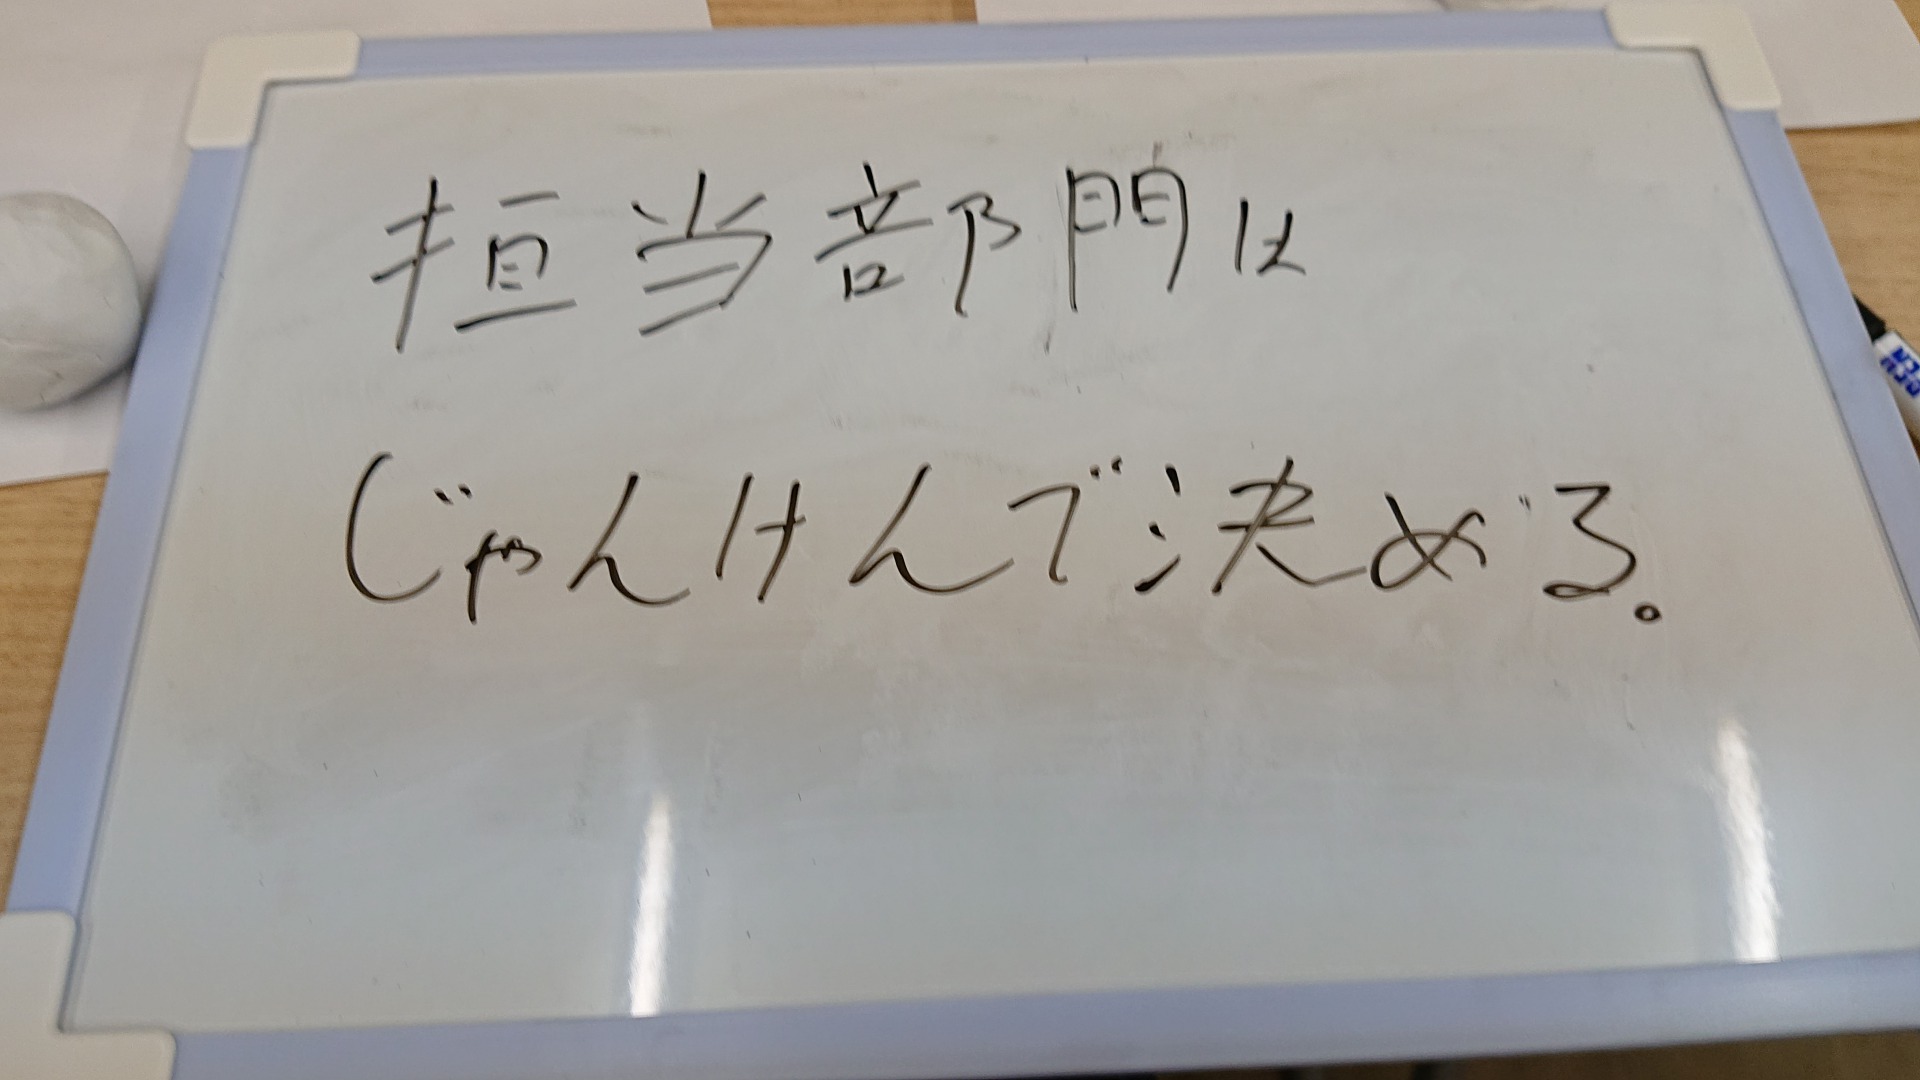 担当部門は
じゃんけんで決める。